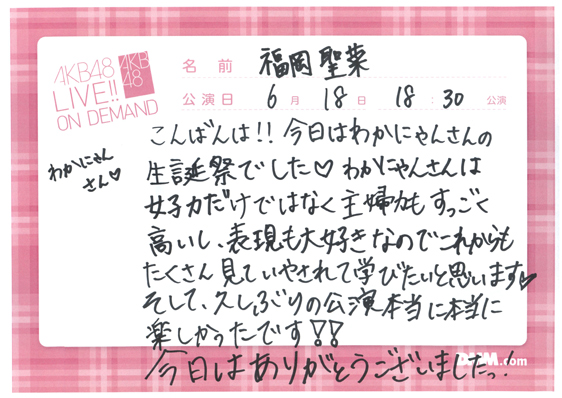 AKB48
LIVE!!
ON DEMAND
AKB
48
名前 福岡聖菜
公演日 6月 18日 18:30 公演
わかにゃん
さん♡
こんばんは!! 今日はわかにゃんさんの
生誕祭でした♡ わかにゃんさんは
女子力だけではなく主婦力もすっごく
高いし、表現も大好きなのでこれからも
たくさん見ていやされて学びたいと思います♡
そして、久しぶりの公演本当に本当に
楽しかったです!!
今日はありがとうございましたっ!
DMM.com